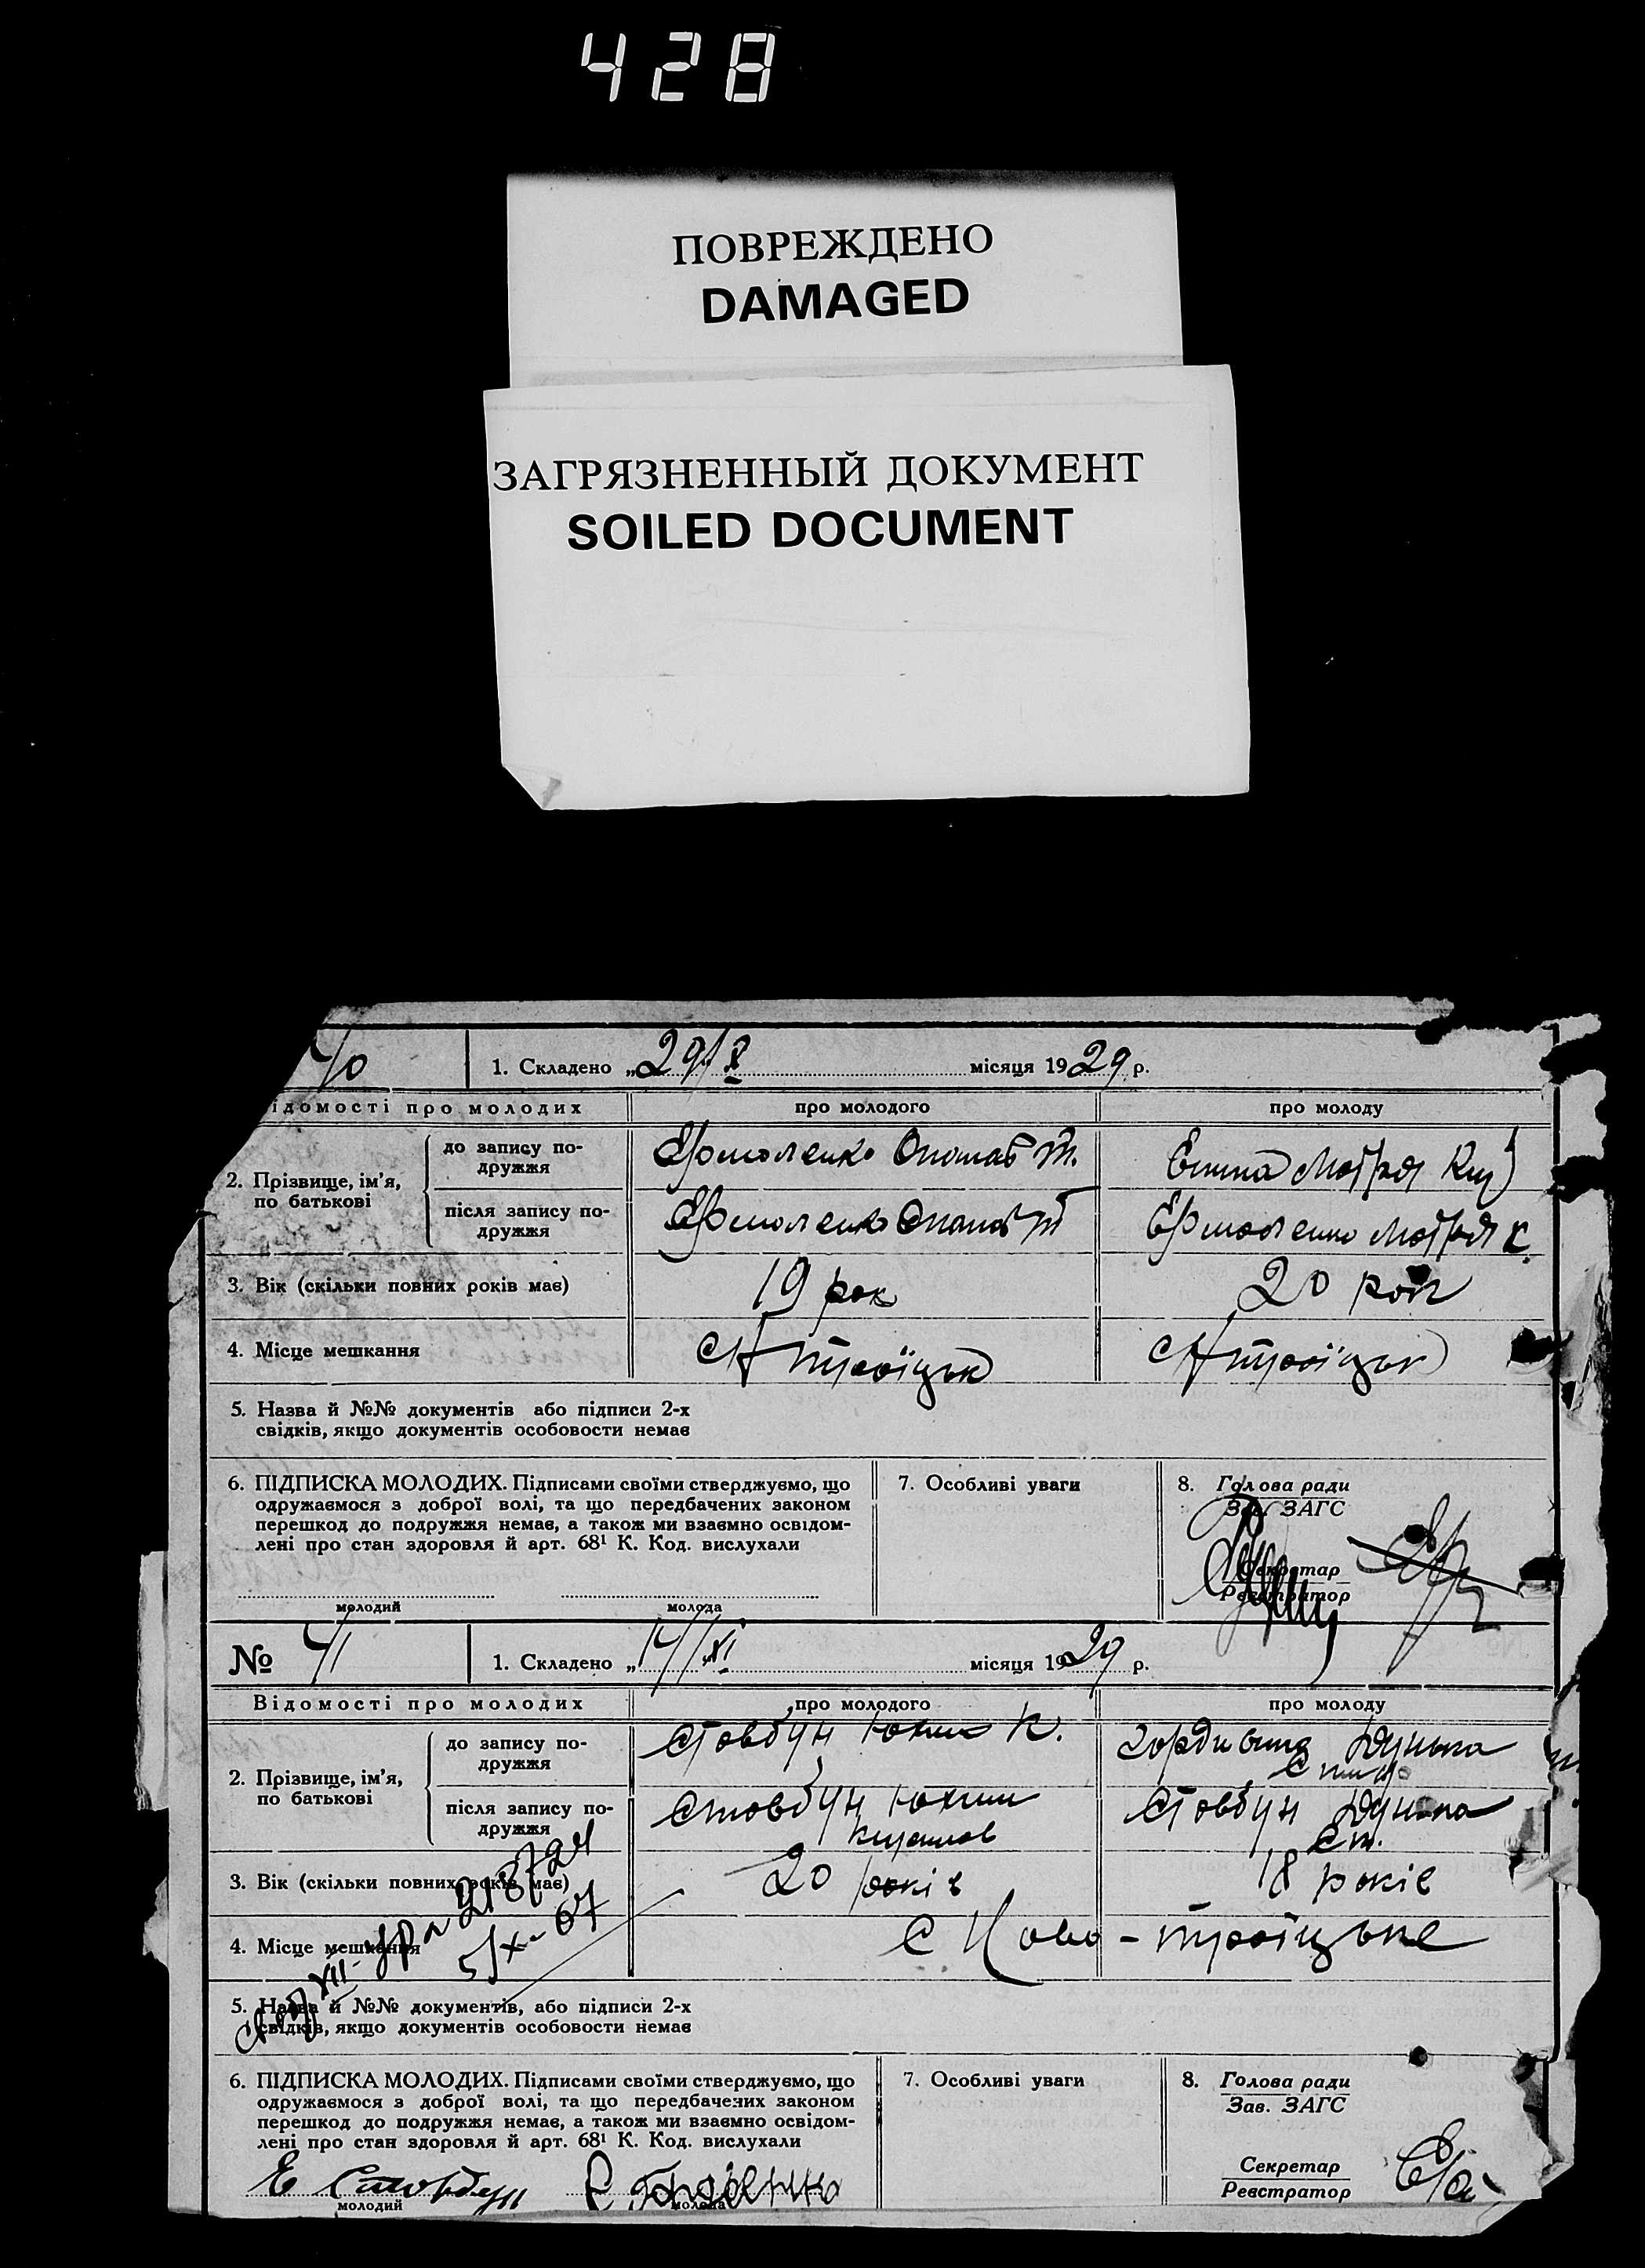 428
ПОВРЕЖДЕНО
DAMAGED
ЗАГРЯЗНЕННЫЙ ДОКУМЕНТ
SOILED DOCUMENT
40 1. Складено „29/X місяця 1929 р.
ідомості про молодих про молодого про молоду
2. Прізвище, ім'я, по батькові
до запису подружжя Єрмоленко Опанас Т. Мотря
після запису подружжя Єрмоленко Опанас Т Єрмоленко Мотря К.
3. Вік (скільки повних років має) 19 рок 20 рок
4. Місце мешкання с Н Троїцьк с Н Троїцьк
5. Назва й №№ документів або підписи 2-х
свідків, якщо документів особовости немає
6. ПІДПИСКА МОЛОДИХ. Підписами своїми стверджуємо, що
одружаємося з доброї волі, та що передбачених законом
перешкод до подружжя немає, а також ми взаємно освідом-
лені про стан здоровля й арт. 68¹ К. Код. вислухали
7. Особливі уваги
8. Голова ради
Зав. ЗАГС
Секретар
Реєстратор
молодий молода
№ 41 1. Складено „14/XI місяця 1929 р.
Відомості про молодих про молодого про молоду
2. Прізвище, ім'я, по батькові
до запису подружжя Стовбун Юхим К. Дунька
після запису подружжя Стовбун Юхим Стовбун Дунька
Ст.
3. Вік (скільки повних років має) 20 років 18 років
4. Місце мешкання с Ново-Троїцьке
5/X-67
5. Назва й №№ документів, або підписи 2-х
свідків, якщо документів особовости немає
6. ПІДПИСКА МОЛОДИХ. Підписами своїми стверджуємо, що
одружаємося з доброї волі, та що передбачених законом
перешкод до подружжя немає, а також ми взаємно освідом-
лені про стан здоровля й арт. 68¹ К. Код. вислухали
7. Особливі уваги
8. Голова ради
Зав. ЗАГС
Секретар
Реєстратор
Е Стовбун
молодий молода